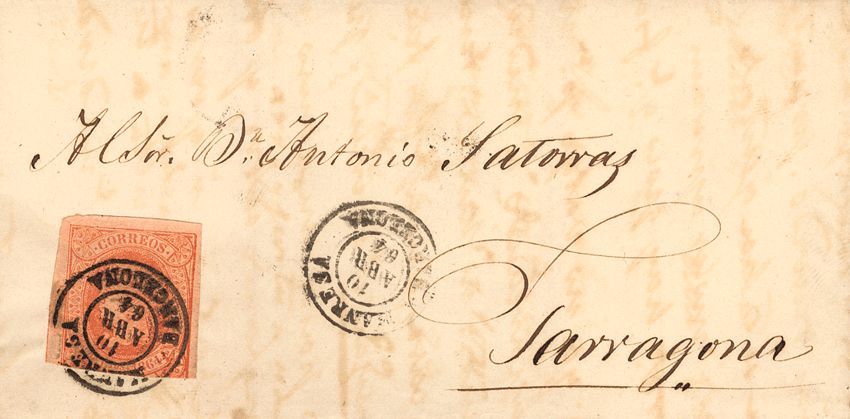 Al Sõr. D.ⁿ Antonio Satorras
Tarragona
CORREOS
BARCELONA
10
ABR
64
MANRESA
BARCELONA
10
ABR
64
MANRESA